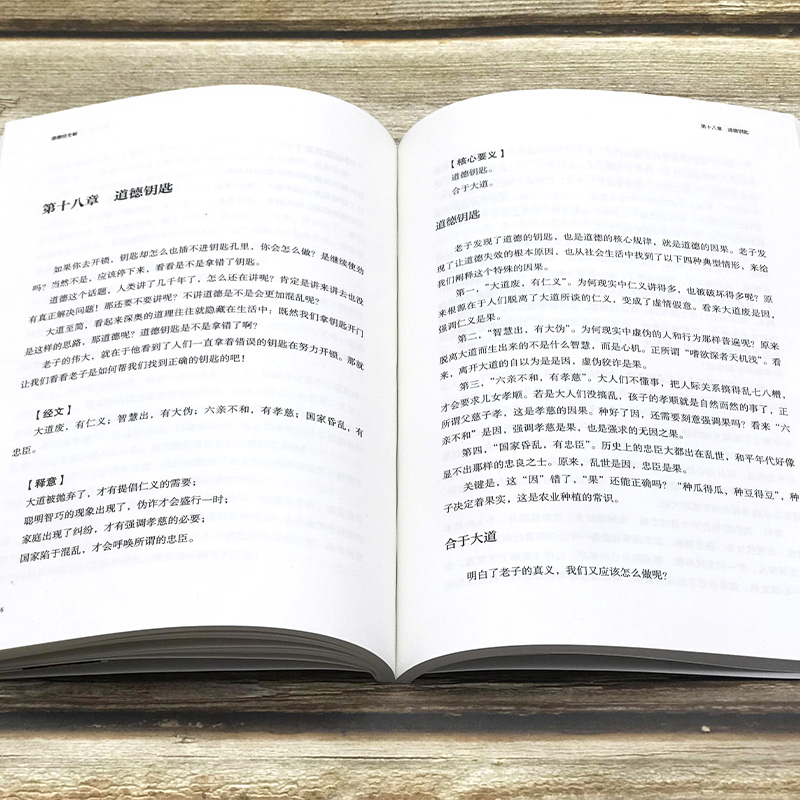 道德经全解
第十八章　道德钥匙
如果你去开锁，钥匙却怎么也插不进钥匙孔里，你会怎么做？是继续使劲
吗？当然不是，应该停下来，看看是不是拿错了钥匙。
道德这个话题，人类讲了几千年了，怎么还在讲呢？肯定是讲来讲去也没
有真正解决问题！那还要不要讲呢？不讲道德是不是会更加混乱呢？
大道至简，看起来深奥的道理往往就隐藏在生活中：既然我们拿钥匙开门
是这样的思路，那道德呢？道德钥匙是不是拿错了啊？
老子的伟大，就在于他看到了人们一直拿着错误的钥匙在努力开锁。那就
让我们看看老子是如何帮我们找到正确的钥匙的吧！
【经文】
大道废，有仁义；智慧出，有大伪；六亲不和，有孝慈；国家昏乱，有
忠臣。
【释意】
大道被抛弃了，才有提倡仁义的需要；
聪明智巧的现象出现了，伪诈才会盛行一时；
家庭出现了纠纷，才有强调孝慈的必要；
国家陷于混乱，才会呼唤所谓的忠臣。
6
第十八章　道德钥匙
【核心要义】
道德钥匙。
合于大道。
道德钥匙
老子发现了道德的钥匙，也是道德的核心规律，就是道德的因果。老子发
现了让道德失效的根本原因，也从社会生活中找到了以下四种典型情形，来给
我们阐释这个特殊的因果。
第一，“大道废，有仁义”。为何现实中仁义讲得多，也被破坏得多呢？原
来根源在于人们脱离了大道所谈的仁义，变成了虚情假意。看来大道废是因，
强调仁义是果。
第二，“智慧出，有大伪”。为何现实中虚伪的人和行为那样普遍呢？原来
脱离大道而生出来的不是什么智慧，而是心机。正所谓“嗜欲深者天机浅”。看
来，离开大道的自以为是是因，虚伪狡诈是果。
第三，“六亲不和，有孝慈”。大人们不懂事，把人际关系搞得乱七八糟，
才会要求儿女孝顺。若是大人们没搞乱，孩子的孝顺就是自然而然的事了，正
所谓父慈子孝，这是孝慈的因果。种好了因，还需要刻意强调果吗？看来“六
亲不和”是因，强调孝慈是果，也是强求的无因之果。
第四，“国家昏乱，有忠臣”。历史上的忠臣大都出在乱世，和平年代好像
显不出那样的忠良之士。原来，乱世是因，忠臣是果。
关键是，这“因”错了，“果”还能正确吗？“种瓜得瓜，种豆得豆”，种
子决定着果实，这是农业种植的常识。
合于大道
明白了老子的真义，我们又应该怎么做呢？